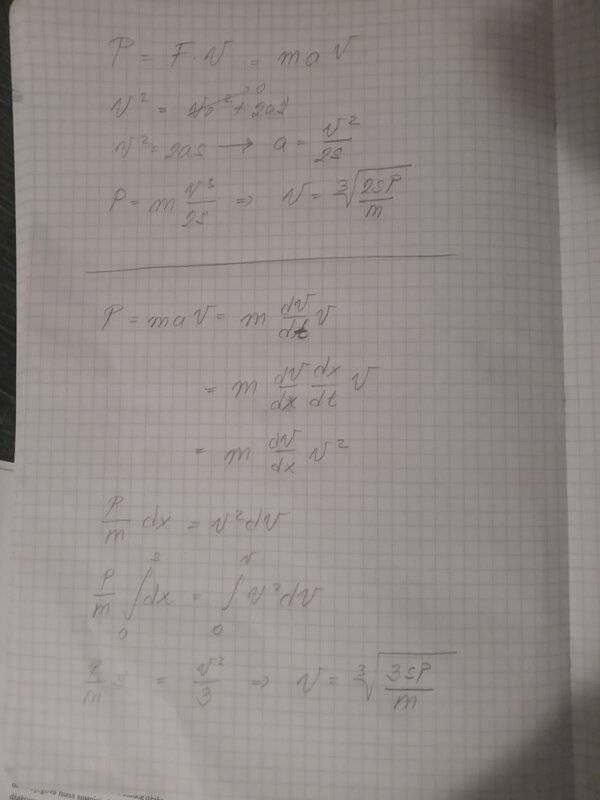 P = F · v = m a v
v² = v₀² → 0 + 2as
v² = 2as → a = v²/2s
P = m v³/2s ⇒ v = ∛(2sP/m)
P = m a v = m dv/dt v
= m dv/dx dx/dt v
= m dv/dx v²
P/m dx = v² dv
P/m ∫₀ˢ dx = ∫₀ᵛ v² dv
P/m s = v²/3 ⇒ v = ∛(3sP/m)